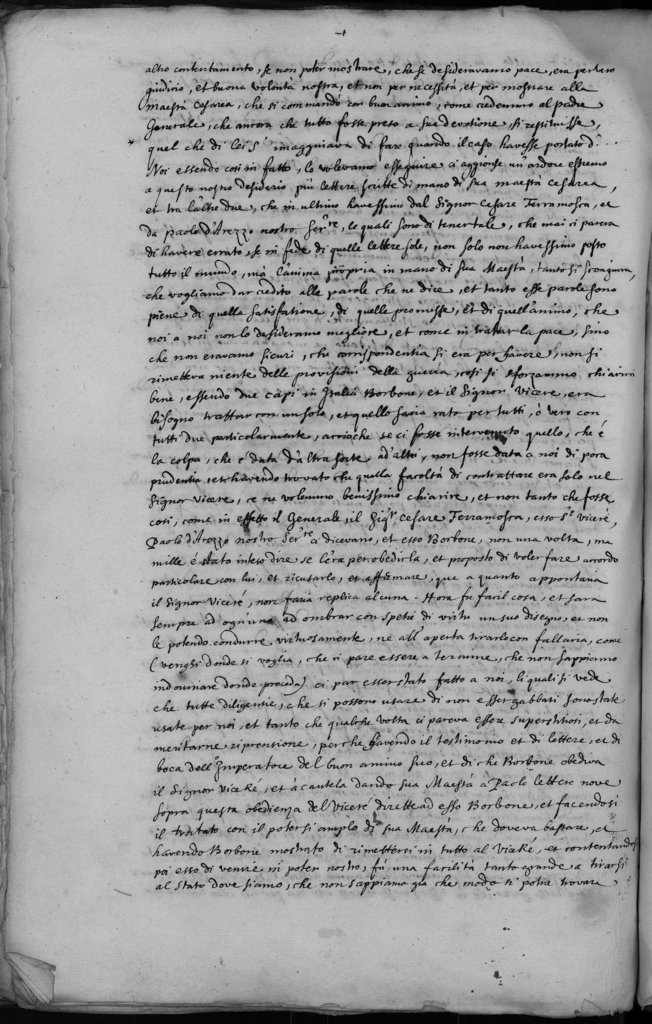 altro contentamento, se non poter mostrare, che se desideravamo pace, era per vero
giudicio, et buona volontà nostra, et non per necessità, et per mostrare alla
Maestà Cesarea, che si commandò con buon animo, come credemmo al padre
Generale, che ancora che tutto fosse preso a sua devotione, si restituisse,
quel che di lei s' imagginava di fare quando il caso havesse portato d'
Noi essendo così in fatto, lo volevamo esseguire ci aggionse un'ardore estremo
a questo nostro desiderio più lettere scritte di mano di sua maestà cesarea,
et tra l'altre due, che in ultimo havessimo dal Signor Cesare Ferramosca, et
da Paolo d'Arezzo nostro Ser.re, le quali sono di tenor tale, che mai ci pareva
di havere errato, se in fede di quelle lettere sole, non solo non havessimo posto
tutto il mondo, mà l'anima propria in mano di sua Maestà, tanto si scongiura,
che vogliamo dar credito alle parole che ne dice, et tanto esse parole sono
piene di quella satisfatione, di quelle promesse, et di quell'animo, che
noi a noi non lo desideramo megliore, et come in trattar la pace, sino
che non eravamo sicuri, che corrispondentia si era per havere, non si
rimetteva niente delle provisioni della guerra, così si sforzammo chiarirci
bene, essendo due capi in Italia Borbone, et il Signor Vicere, era
bisogno trattar con un solo, et quello saria rato per tutti, ò vero con
tutti due particolarmente, acciochè se ci fosse intervenuto quello, che è
la colpa, che è data d'altra sorte ad altri, non fosse data a noi di poca
prudentia, et havendo trovato che quella facoltà di contrattare era solo nel
Signor Vicere, ce ne volemmo benissimo chiarire, et non tanto che fosse
così, come in effetto il Generale, il Sig.r Cesare Ferramosca, esso S.r Vicerè,
Paolo d'Arezzo nostro Ser.re ci dicevano, et esso Borbone, non una volta, ma
mille è stato inteso dire se l'era per obedirla, et proposto di voler fare accordo
particolare con lui, et ricusarlo, et affirmare, que a quanto appontava
il Signor Vicerè, non faria replica alcuna. Hora fu facil cosa, et sarà
sempre ad ogni uno ad ombrar con spetie di virtù un suo disegno, et non
lo potendo condurre virtuosamente, ne all'aperta tirarlo con fallacia, come
(venghi donde si voglia, che ci pare essere a termine, che non sappiamo
indovinare donde proceda) ci par esser stato fatto a noi, li quali si vede
che tutte diligentie, che si possono usare di non esser gabbati sono state
usate per noi, et tanto che qualche volta ci pareva essere superstitiosi, et da
meritarne riprensione, perche havendo il testimonio et di lettere, et di
boca dell'Imperatore del buon animo suo, et di che Borbone obediva
il Signor ViceRé, et à cautela dando sua Maestà a Paolo lettere nove
sopra questa obedienza del Vicerè dirette ad esso Borbone, et facendosi
il trattato con il potersi amplo di sua Maestà, che doveva bastare, et
havendo Borbone mostrato di rimettersi in tutto al ViceRé, et contentandosi
poi esso di venire in poter nostro, fù una facilità tanto grande a tirarsi
al stato dove siamo, che non sappiamo già che modo si potria trovare